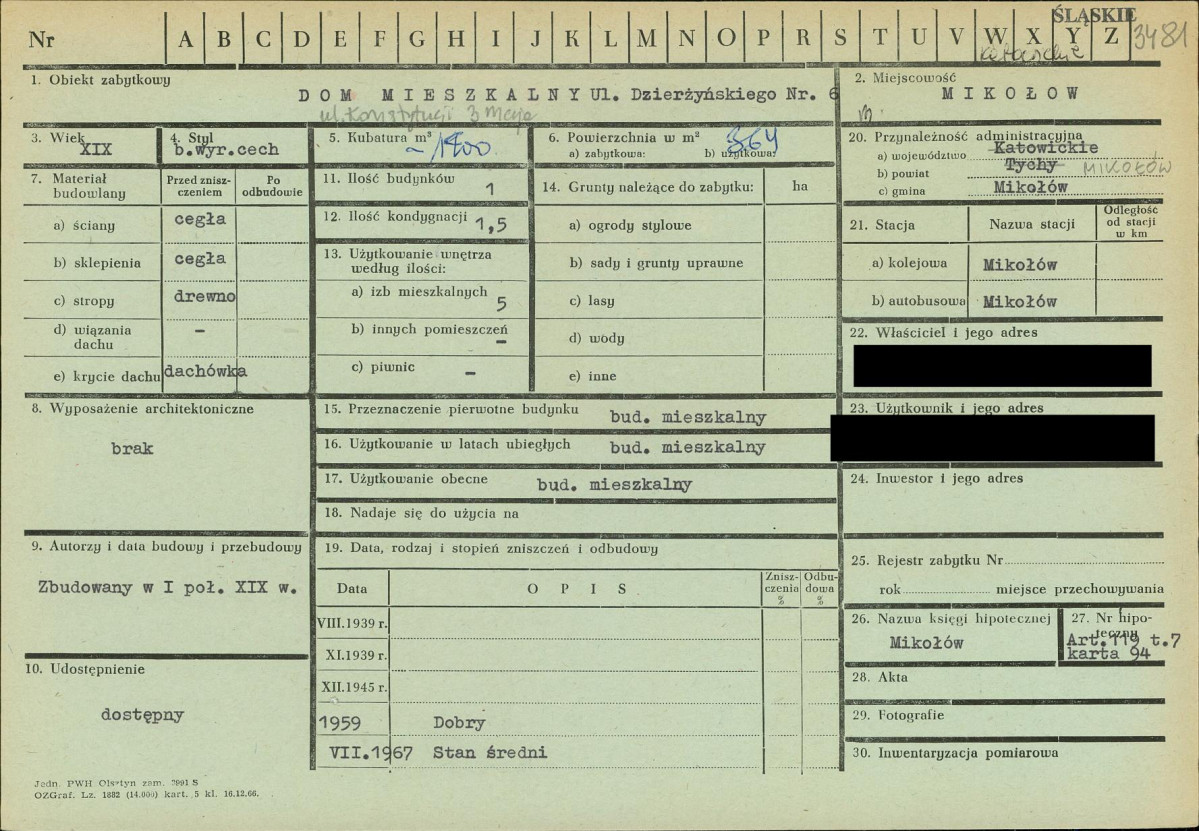 ŚLĄSKIE
Nr A B C D E F G H I J K L M N O P R S T U V W X Y Z 3481
1. Obiekt zabytkowy
DOM MIESZKALNY Ul. Dzierżyńskiego Nr. 6
ul. Konstytucji 3 Maja
2. Miejscowość
MIKOŁOW
3. Wiek
XIX
4. Styl
b.wyr.cech
5. Kubatura m³
~1400
6. Powierzchnia w m²
a) zabytkowa: b) użytkowa:
364
7. Materiał budowlany
Przed znisz-
czeniem
Po
odbudowie
a) ściany cegła
b) sklepienia cegła
c) stropy drewno
d) wiązania
dachu –
e) krycie dachu dachówka
8. Wyposażenie architektoniczne
brak
9. Autorzy i data budowy i przebudowy
Zbudowany w I poł. XIX w.
10. Udostępnienie
dostępny
11. Ilość budynków
1
12. Ilość kondygnacji
1,5
13. Użytkowanie wnętrza
według ilości:
a) izb mieszkalnych
5
b) innych pomieszczeń
–
c) piwnic –
14. Grunty należące do zabytku: ha
a) ogrody stylowe
b) sady i grunty uprawne
c) lasy
d) wody
e) inne
15. Przeznaczenie pierwotne budynku bud. mieszkalny
16. Użytkowanie w latach ubiegłych bud. mieszkalny
17. Użytkowanie obecne bud. mieszkalny
18. Nadaje się do użycia na
19. Data, rodzaj i stopień zniszczeń i odbudowy
Data O P I S
Znisz-
czenia
%
Odbu-
dowa
%
VIII.1939 r.
XI.1939 r.
XII.1945 r.
1959 Dobry
VII.1967 Stan średni
20. Przynależność administracyjna
a) województwo Katowickie
b) powiat Tychy MIKOŁÓW
c) gmina Mikołów
21. Stacja Nazwa stacji
Odległość
od stacji
w km
a) kolejowa Mikołów
b) autobusowa Mikołów
22. Właściciel i jego adres
23. Użytkownik i jego adres
24. Inwestor i jego adres
25. Rejestr zabytku Nr
rok miejsce przechowywania
26. Nazwa księgi hipotecznej
Mikołów
27. Nr hipo-
teczny
Art.119 t.7
karta 94
28. Akta
29. Fotografie
30. Inwentaryzacja pomiarowa
Jedn. PWH Olsztyn zam. 2991 S
OZGraf. Lz. 1882 (14.000) kart. 5 kl. 16.12.66.